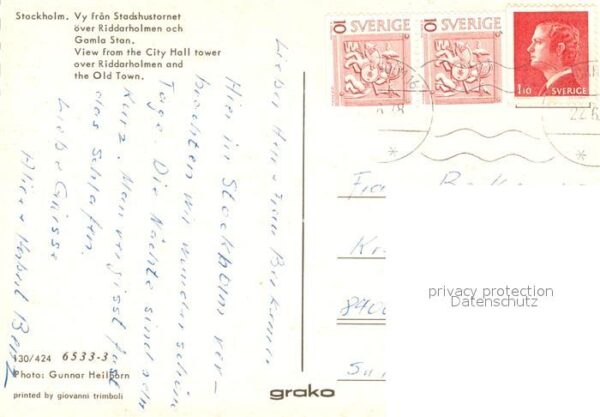 Stockholm. Vy från Stadshustornet
över Riddarholmen och
Gamla Stan.
View from the City Hall tower
over Riddarholmen and
the Old Town.
10 SVERIGE
10 SVERIGE
1.10 SVERIGE
22.6
Lieber Herr + Frau
Hier in Stockholm ver-
bringen wir unsere schönen
Tage. Die Nächte sind sehr
kurz. Man vergisst fast
das Schlafen.
Liebe Grüsse
8700
privacy protection
Datenschutz
130/424 6533-3
Photo: Gunnar Heilborn
printed by giovanni trimboli
grako